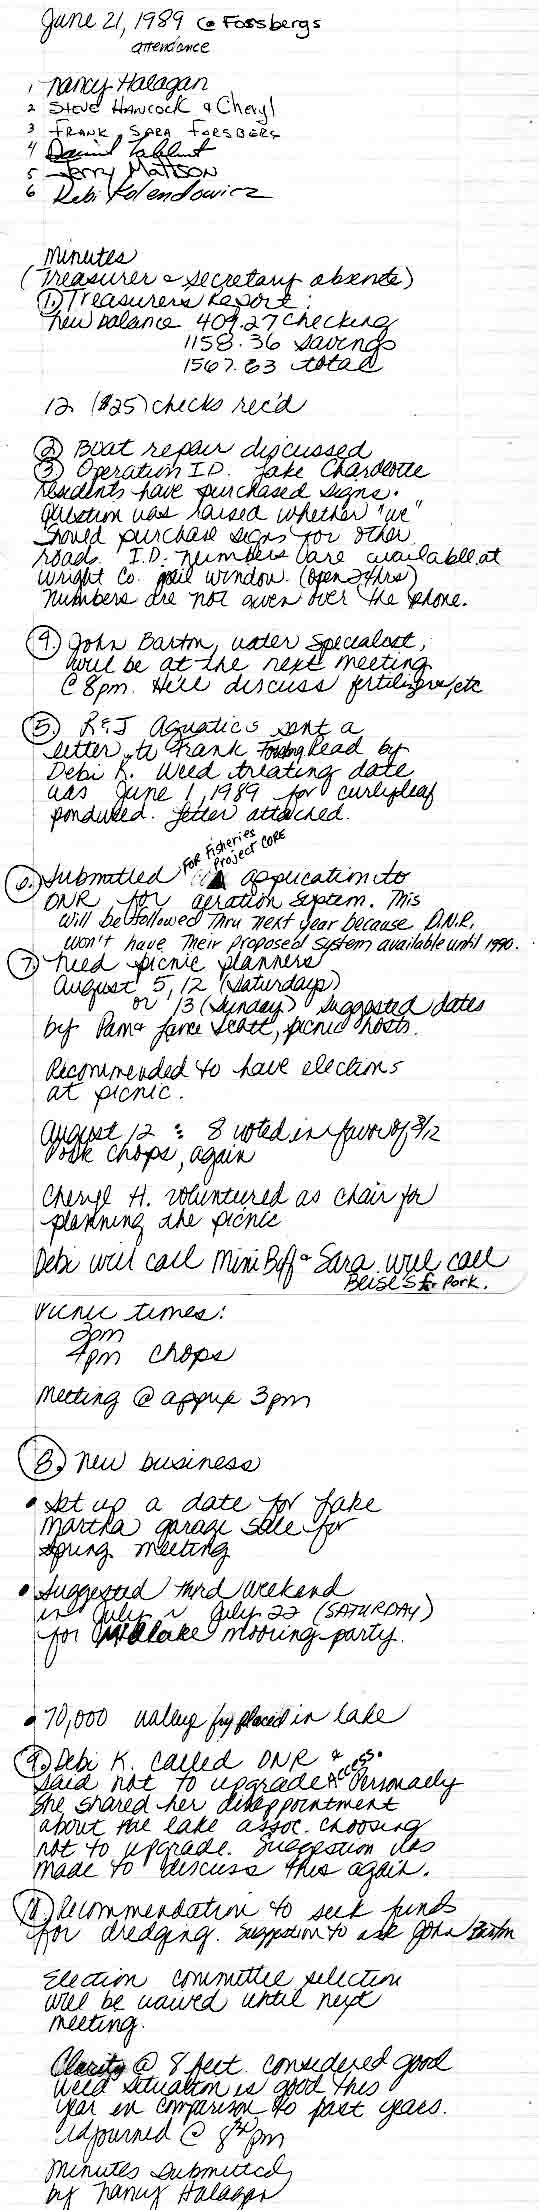 June 21, 1989 @ Forsbergs
attendance
1 Nancy Halagan
2 Steve Hancock & Cheryl
3 Frank, Sara Forsberg
4
5 Jerry Mattson
6 Debi Kolendowicz
Minutes
(Treasurer & secretary absente)
1. Treasurers Report:
new balance 409.27 checking
1158.36 savings
1567.63 total
12 ($25) checks rec'd
2 Boat repair discussed
3 Operation I.D. Lake Charlotte
residents have purchased signs.
Question was raised whether "we"
should purchase signs for other
roads. I.D. numbers are available at
Wright Co. jail window. (open 24hrs)
Numbers are not given over the phone.
4. John Barton, water specialist,
will be at the next meeting
@ 8pm. He'll discuss fertilizers, etc
5. R&J Aquatics sent a
letter to Frank Forsberg Read by
Debi K. Weed treating date
was June 1, 1989 for curlyleaf
pondweed. Letter attached.
6. Submitted For Fisheries Project CORE application to
DNR for aeration system. This
will be followed thru next year because D.N.R.
won't have their proposed system available until 1990.
7. Need picnic planners
August 5, 12 (Saturdays)
or 13 (Sunday) suggested dates
by Pam & Scott, picnic hosts.
Recommended to have elections
at picnic.
August 12 : 8 voted in favor of 8/12
Pork chops, again
Cheryl H. voluntured as chair for
planning the picnic
Debi will call Mini Biff & Sara will call
Beise's for pork.
Picnic times:
3pm
4pm chops
Meeting @ approx 3pm
8. New business
• Set up a date for Lake
Martha garage sale for
spring meeting
• Suggested third weekend
in July ~ July 22 (SATURDAY)
for lake mooring party.
• 70,000 walleye fry placed in lake
9. Debi K. called DNR &
said not to upgrade Access. Personally
she shared her disappointment
about the lake assoc. choosing
not to upgrade. Suggestion was
made to discuss this again.
10. Recommendation to seek funds
for dredging. Suggestion to ask John Barton
Election committee selection
will be waived until next
meeting.
Clarity @ 8 feet considered good
Weed situation is good this
year in comparison to past years.
Adjourned @ pm
Minutes submitted
by Nancy Halagan